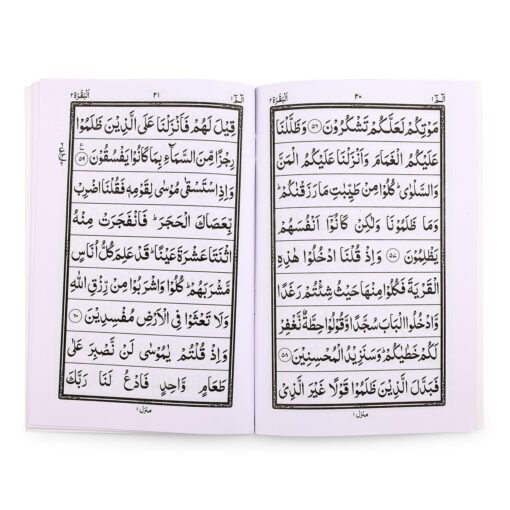 الٓمّٓ ۱ ۲۰ اَلْبَقَرَة ۲
مَوْتِكُمْ لَعَلَّكُمْ تَشْكُرُوْنَ ﴿۵۶﴾ وَظَلَّلْنَا
عَلَيْكُمُ الْغَمَامَ وَاَنْزَلْنَا عَلَيْكُمُ الْمَنَّ
وَالسَّلْوٰىؕ كُلُوْا مِنْ طَيِّبٰتِ مَا رَزَقْنٰكُمْؕ
وَمَا ظَلَمُوْنَا وَلٰكِنْ كَانُوْٓا اَنْفُسَهُمْ
يَظْلِمُوْنَ ﴿۵۷﴾ وَاِذْ قُلْنَا ادْخُلُوْا هٰذِهِ
الْقَرْيَةَ فَكُلُوْا مِنْهَا حَيْثُ شِئْتُمْ رَغَدًا
وَّادْخُلُوا الْبَابَ سُجَّدًا وَّقُوْلُوْا حِطَّةٌ نَّغْفِرْ
لَكُمْ خَطٰيٰكُمْؕ وَسَنَزِيْدُ الْمُحْسِنِيْنَ ﴿۵۸﴾
فَبَدَّلَ الَّذِيْنَ ظَلَمُوْا قَوْلًا غَيْرَ الَّذِيْ
منزل ۱
الٓمّٓ ۱ ۲۱ اَلْبَقَرَة ۲
قِيْلَ لَهُمْ فَاَنْزَلْنَا عَلَى الَّذِيْنَ ظَلَمُوْا
رِجْزًا مِّنَ السَّمَآءِ بِمَا كَانُوْا يَفْسُقُوْنَ ﴿۵۹﴾
وَاِذِ اسْتَسْقٰى مُوْسٰى لِقَوْمِهٖ فَقُلْنَا اضْرِبْ
بِّعَصَاكَ الْحَجَرَؕ فَانْفَجَرَتْ مِنْهُ
اثْنَتَا عَشْرَةَ عَيْنًاؕ قَدْ عَلِمَ كُلُّ اُنَاسٍ
مَّشْرَبَهُمْؕ كُلُوْا وَاشْرَبُوْا مِنْ رِّزْقِ اللّٰهِ
وَلَا تَعْثَوْا فِي الْاَرْضِ مُفْسِدِيْنَ ﴿۶۰﴾
وَاِذْ قُلْتُمْ يٰمُوْسٰى لَنْ نَّصْبِرَ عَلٰى
طَعَامٍ وَّاحِدٍ فَادْعُ لَنَا رَبَّكَ
منزل ۱